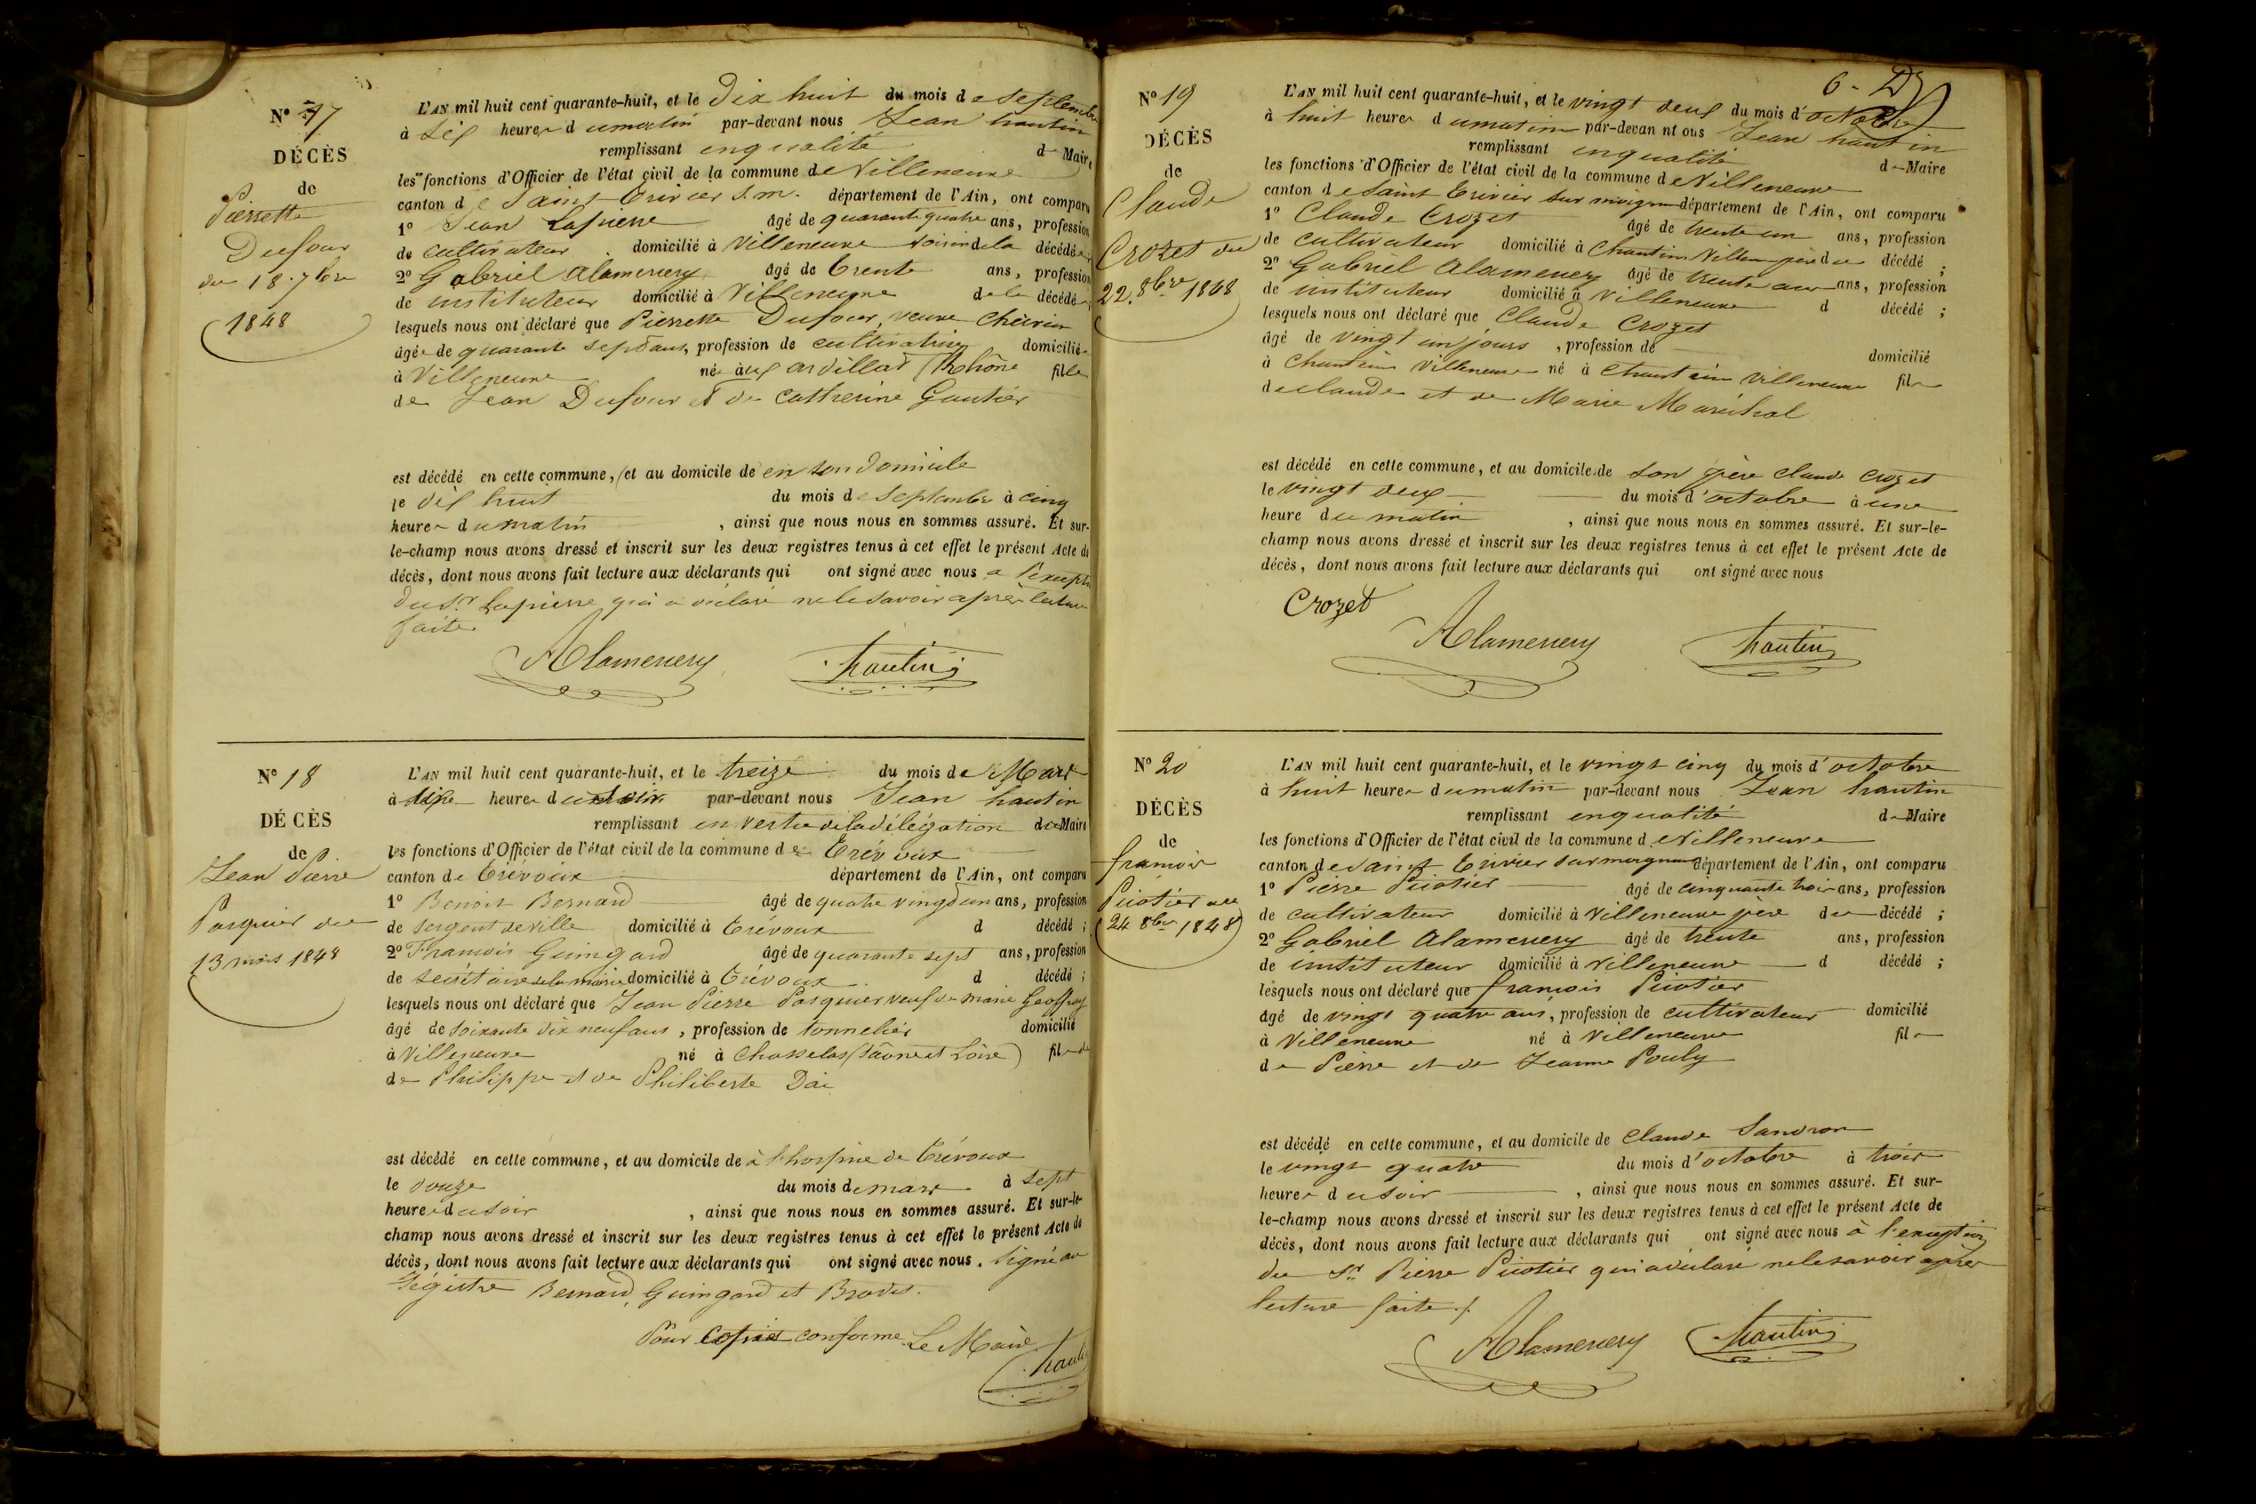 N° 17
DÉCÈS
de
Pierrette
Dufour
du 18 7bre
1848
L'AN mil huit cent quarante-huit, et le Dix huit du mois de Septembre
à six heures du matin par-devant nous Jean hautin
remplissant en qualité de Maire
les fonctions d'Officier de l'état civil de la commune de Villeneuve
canton de Saint Trivier s. m. département de l'Ain, ont comparu
1° Jean Lapierre âgé de quarante quatre ans, profession
de cultivateur domicilié à Villeneuve voisin de la décédée
2° Gabriel Alamercery âgé de trente ans, profession
de instituteur domicilié à Villeneuve de la décédée;
lesquels nous ont déclaré que Pierrette Dufour, veuve
âgée de quarante sept ans, profession de cultivatrice domiciliée
à Villeneuve née aux ardillats (Rhône fille
de Jean Dufour et de Catherine Gautier
est décédé en cette commune, (et au domicile de en son domicile
le dix huit du mois de Septembre à cinq
heures du matin , ainsi que nous nous en sommes assuré. Et sur-
le-champ nous avons dressé et inscrit sur les deux registres tenus à cet effet le présent Acte de
décès, dont nous avons fait lecture aux déclarants qui ont signé avec nous a l'excepti
du Sr Lapierre qui a déclaré ne le savoir après lecture
faite.
Alamercery hautin
N° 18
DÉCÈS
de
Jean Pierre
Pasquier du
13 mars 1848
L'AN mil huit cent quarante-huit, et le treize du mois de Mars
à heures du par-devant nous Jean hautin
remplissant en vertu de la délégation de Maire
les fonctions d'Officier de l'état civil de la commune de Trévoux
canton de Trévoux département de l'Ain, ont comparu
1° Benoit Bernard âgé de quatre vingt un ans, profession
de sergent de ville domicilié à Trévoux d décédé;
2° Francois Guingard âgé de quarante sept ans, profession
de secrétaire de la mairie domicilié à Trévoux d décédé;
lesquels nous ont déclaré que Jean Pierre Pasquier veuf de marie Geoffray
âgé de soixante dix neuf ans, profession de tonnelier domicilié
à Villeneuve né à Chasselas (Saône et Loire) fils de
de Philippe et de Philiberte Dai
est décédé en cette commune, et au domicile de à l'hospice de Trévoux
le douze du mois de mars à sept
heures du soir , ainsi que nous nous en sommes assuré. Et sur-le-
champ nous avons dressé et inscrit sur les deux registres tenus à cet effet le présent Acte de
décès, dont nous avons fait lecture aux déclarants qui ont signé avec nous. Signé au
Régistre Bernard, Guingard et
Pour copies conforme Le Maire
hautin
6 -
N° 19
DÉCÈS
de
Claude
Crozet du
22. 8bre 1848
L'AN mil huit cent quarante-huit, et le vingt deux du mois d'octobre
à huit heures du matin par-devan nt ous Jean hautin
remplissant en qualité de Maire
les fonctions d'Officier de l'état civil de la commune de Villeneuve
canton de Saint Trivier sur moignans département de l'Ain, ont comparu
1° Claude Crozet âgé de trente un ans, profession
de cultivateur domicilié à Chantein Villen père du décédé;
2° Gabriel Alamercery âgé de trente ans, profession
de instituteur domicilié à Villeneuve d décédé;
lesquels nous ont déclaré que Claude Crozet
âgé de vingt un jours, profession de domicilié
à Chantein Villeneuve né à Chantein Villeneuve fils
de claude et de Marie Maréchal
est décédé en cette commune, et au domicile de son père Claude Crozet
le vingt deux du mois d'octobre à une
heure du matin , ainsi que nous nous en sommes assuré. Et sur-le-
champ nous avons dressé et inscrit sur les deux registres tenus à cet effet le présent Acte de
décès, dont nous avons fait lecture aux déclarants qui ont signé avec nous
Crozet
Alamercery hautin
N° 20
DÉCÈS
de
francois
Picotier du
24 8bre 1848
L'AN mil huit cent quarante-huit, et le vingt cinq du mois d'octobre
à huit heures du matin par-devant nous Jean hautin
remplissant en qualité de Maire
les fonctions d'Officier de l'état civil de la commune de Villeneuve
canton de Saint Trivier sur moignans département de l'Ain, ont comparu
1° Pierre Picotier âgé de cinquante trois ans, profession
de cultivateur domicilié à Villeneuve père du décédé;
2° Gabriel Alamercery âgé de trente ans, profession
de instituteur domicilié à Villeneuve d décédé;
lesquels nous ont déclaré que francois Picotier
âgé de vingt quatre ans, profession de cultivateur domicilié
à Villeneuve né à Villeneuve fils
de Pierre et de Jeanne Pouly
est décédé en cette commune, et au domicile de Claude Sandron
le vingt quatre du mois d'octobre à trois
heures du soir , ainsi que nous nous en sommes assuré. Et sur-
le-champ nous avons dressé et inscrit sur les deux registres tenus à cet effet le présent Acte de
décès, dont nous avons fait lecture aux déclarants qui ont signé avec nous à l'exception
du Sr Pierre Picotier qui a déclaré ne le savoir après
lecture faite./.
Alamercery hautin